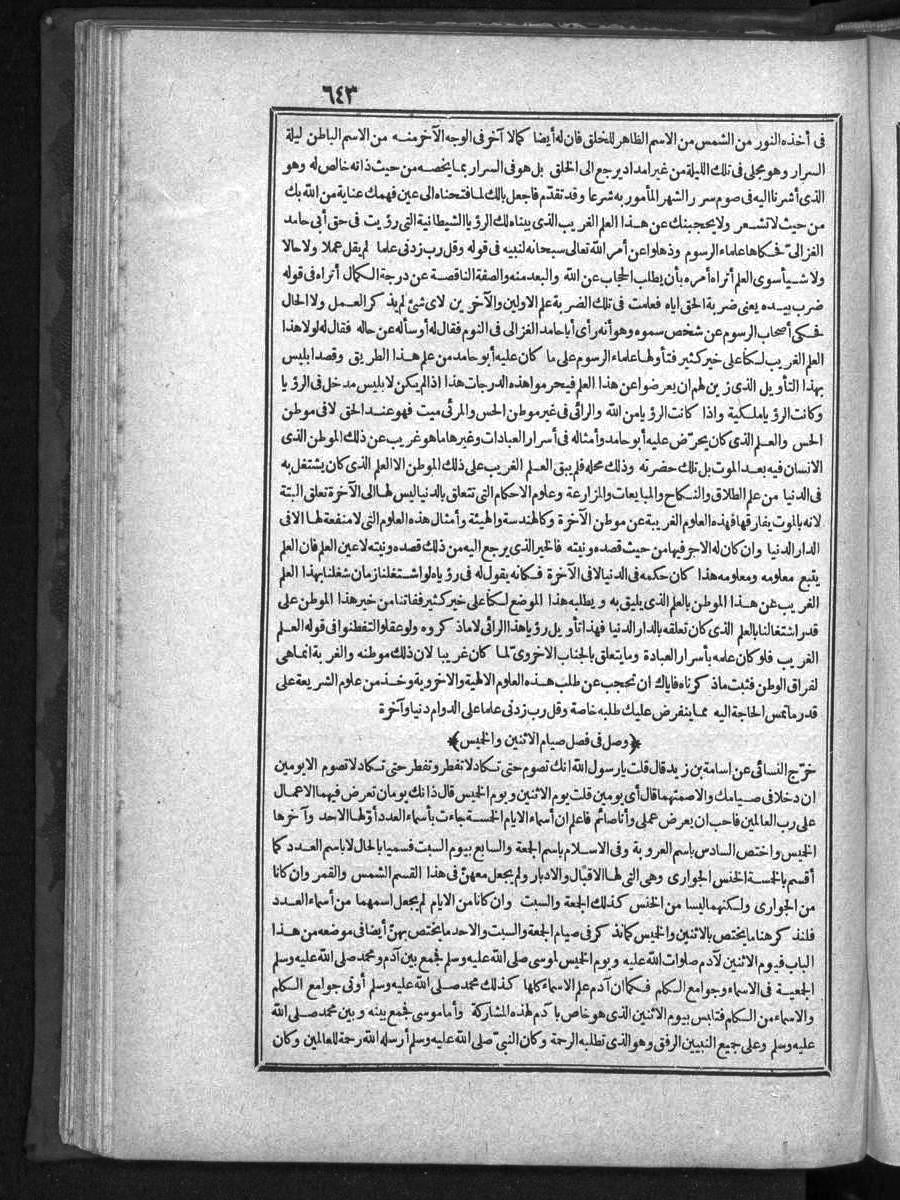 ٦٤٣
فى أخذه النور من الشمس من الاسم الظاهر للخلق فان له أيضا كمالا آخر فى الوجه الآخر منه من الاسم الباطن ليلة
السرار وهو مجلى فى تلك الليلة من غير امداد يرجع الى الخلق بل هو فى السرار بما يخصه من حيث ذاته خالص له وهو
الذى أشرنا اليه فى صوم سرر الشهر المأمور به شرعا وقد تقدّم فاجعل بالك لما فتحناه الى عين فهمك عناية من الله بك
من حيث لا تشعر ولا يحجبنك عن هذا العلم الغريب الذى بيناه لك الرؤيا الشيطانية التى رؤيت فى حق أبى حامد
الغزالىّ فحكاها علماء الرسوم وذهلوا عن أمر الله تعالى سبحانه لنبيه فى قوله وقل رب زدنى علما لم يقل عملا ولا حالا
ولا شيأ سوى العلم أتراه أمره بأن يطلب الحجاب عن الله والبعد منه والصفة الناقصة عن درجة الكمال أتراه فى قوله
ضرب بيده يعنى ضربة الحق اياه فعلمت فى تلك الضربة علم الاولين والآخرين لاى شئ لم يذكر العمل ولا الحال
فحكى أصحاب الرسوم عن شخص سموه وهو أنه رأى أبا حامد الغزالى فى النوم فقال له أو سأله عن حاله فقال له لولا هذا
العلم الغريب لكنا على خير كثير فتأولها علماء الرسوم على ما كان عليه أبو حامد من علم هذا الطريق وقصد ابليس
بهذا التأويل الذى زين لهم ان يعرضوا عن هذا العلم فيحرموا هذه الدرجات هذا اذا لم يكن لابليس مدخل فى الرؤيا
وكانت الرؤيا ملكية واذا كانت الرؤيا من الله والرائى فى غير موطن الحس والمرئى ميت فهو عند الحق لا فى موطن
الحس والعلم الذى كان يحرّض عليه أبو حامد وأمثاله فى أسرار العبادات وغيرها ما هو غريب عن ذلك الموطن الذى
الانسان فيه بعد الموت بل تلك حضرته وذلك محله فلم يبق العلم الغريب على ذلك الموطن الا العلم الذى كان يشتغل به
فى الدنيا من علم الطلاق والنكاح والمبايعات والمزارعة وعلوم الاحكام التى تتعلق بالدنيا ليس لها الى الآخرة تعلق البتة
لانه بالموت يفارقها فهذه العلوم الغريبة عن موطن الآخرة وكالهندسة والهيئة وأمثال هذه العلوم التى لا منفعة لها الا فى
الدار الدنيا وان كان له الاجر فيها من حيث قصده ونيته فالخير الذى يرجع اليه من ذلك قصده ونيته لا عين العلم فان العلم
يتبع معلومه ومعلومه هذا كان حكمه فى الدنيا لا فى الآخرة فكانه يقول له فى رؤياه لو اشتغلنا زمان شغلنا بهذا العلم
الغريب عن هذا الموطن بالعلم الذى يليق به ويطلبه هذا الموضع لكنا على خير كثير ففاتنا من خير هذا الموطن على
قدر اشتغالنا بالعلم الذى كان تعلقه بالدار الدنيا فهذا تأويل رؤيا هذا الرائى لا ما ذكروه ولو عقلوا لتفطنوا فى قوله العلم
الغريب فلو كان علمه بأسرار العبادة وما يتعلق بالجناب الاخروىّ لما كان غريبا لان ذلك موطنه والغربة انما هى
لفراق الوطن فثبت ما ذكرناه فاياك ان تحجب عن طلب هذه العلوم الالهية والاخروية وخذ من علوم الشريعة على
قدر ما تمس الحاجة اليه مما ينفرض عليك طلبه خاصة وقل رب زدنى علما على الدوام دنيا وآخرة
﴿وصل فى فصل صيام الاثنين والخميس﴾
خرّج النسائى عن اسامة بن زيد قال قلت يا رسول الله انك تصوم حتى تكاد لا تفطر وتفطر حتى تكاد لا تصوم الا يومين
ان دخلا فى صيامك والا صمتهما قال أى يومين قلت يوم الاثنين ويوم الخميس قال ذانك يومان تعرض فيهما الاعمال
على رب العالمين فاحب ان يعرض عملى وأنا صائم فاعلم ان أسماء الايام الخمسة جاءت بأسماء العدد أوّلها الاحد وآخرها
الخميس واختص السادس باسم العروبة وفى الاسلام باسم الجمعة والسابع بيوم السبت فسميا بالحال لا باسم العدد كما
أقسم بالخمسة الخنس الجوارى وهى التى لها الاقبال والادبار ولم يجعل معهنّ فى هذا القسم الشمس والقمر وان كانا
من الجوارى ولكنهما ليسا من الخنس كذلك الجمعة والسبت وان كانا من الايام لم يجعل اسمهما من أسماء العدد
فلنذكر هنا ما يختص بالاثنين والخميس كما نذكر فى صيام الجمعة والسبت والاحد ما يختص بهنّ أيضا فى موضعه من هذا
الباب فيوم الاثنين لآدم صلوات الله عليه ويوم الخميس لموسى صلى الله عليه وسلم فجمع بين آدم ومحمد صلى الله عليه وسلم
الجمعية فى الاسماء وجوامع الكلم فكما ان آدم علم الاسماء كلها كذلك محمد صلى الله عليه وسلم أوتى جوامع الكلم
والاسماء من الكلم فتلبس بيوم الاثنين الذى هو خاص بآدم لهذه المشاركة وأما موسى فجمع بينه وبين محمد صلى الله
عليه وسلم وعلى جميع النبيين الرفق وهو الذى تطلبه الرحمة وكان النبىّ صلى الله عليه وسلم أرسله الله رحمة للعالمين وكان